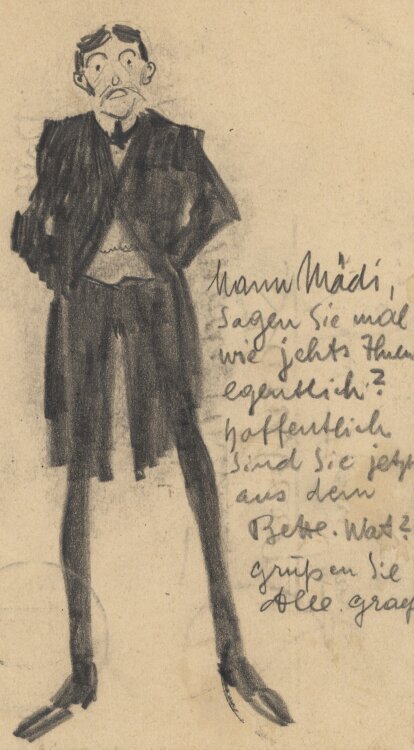 Mann Mädi,
Sagen Sie mal
wie jehts Ihnen
egentlich?
hoffentlich
sind Sie jetzt
aus dem
Bette. Wat?
grüßen Sie
Alle.